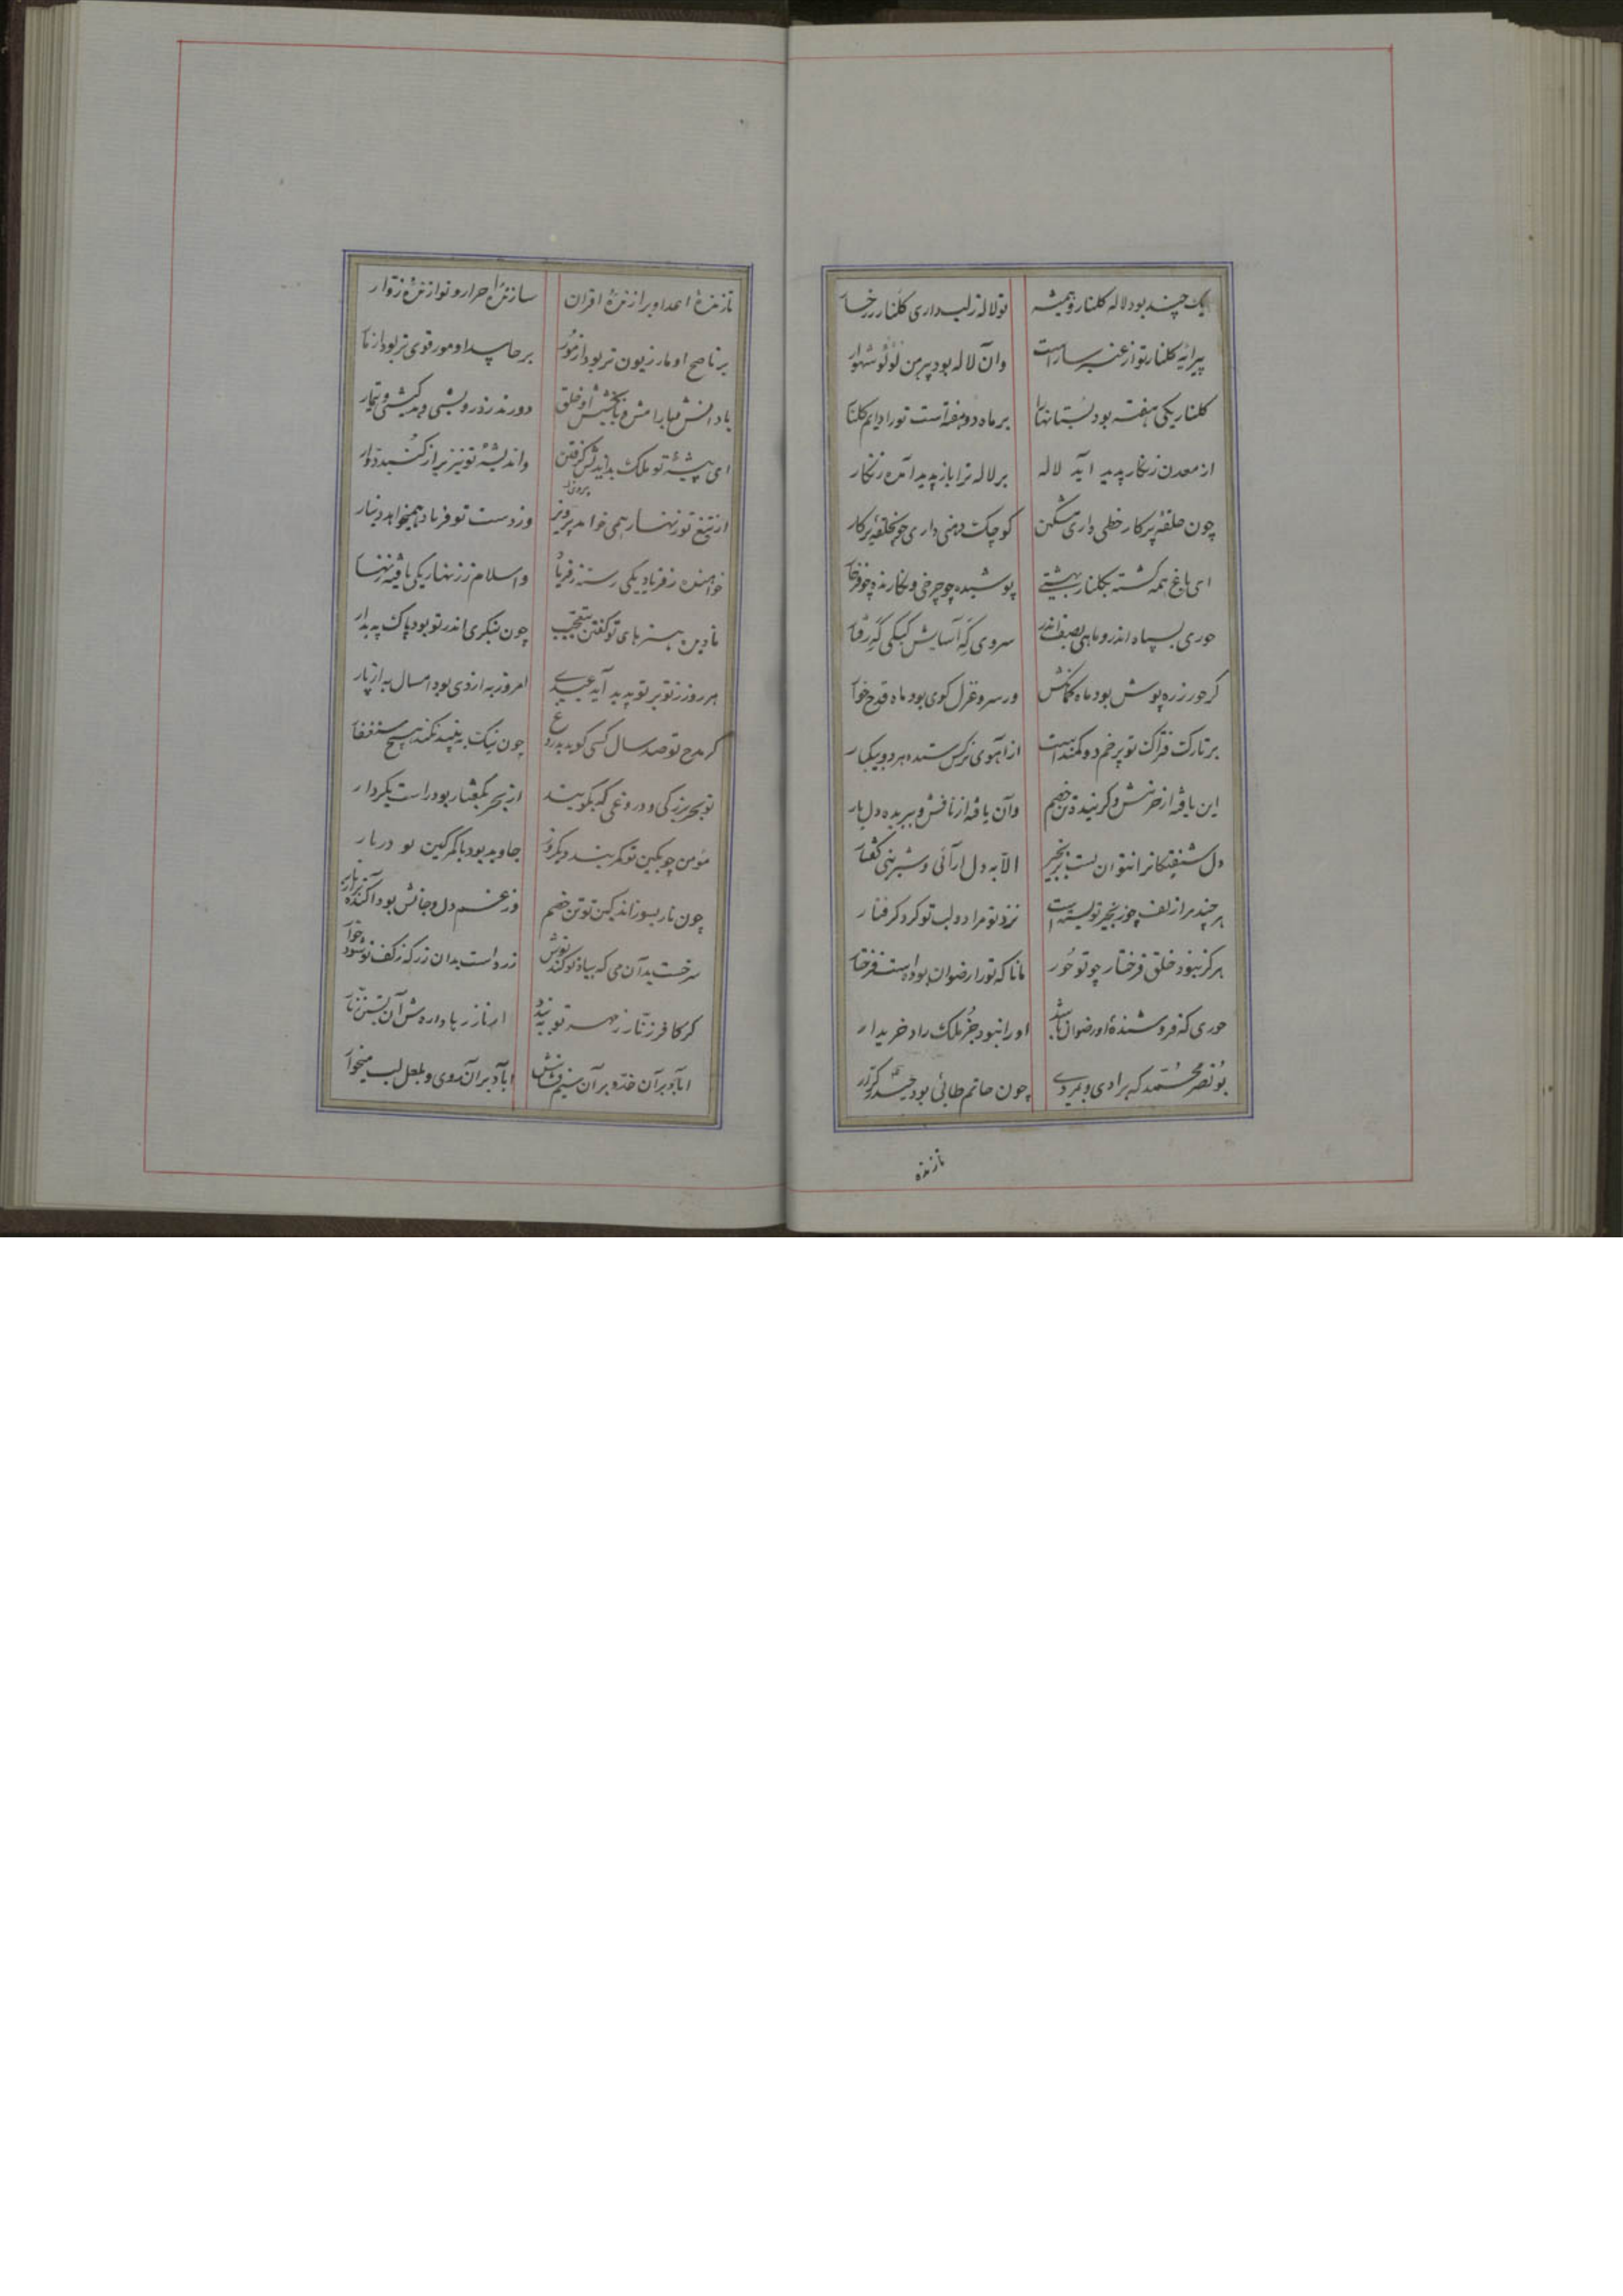 یک چند بود لاله کلنار و همیشه تو لاله زلب داری کلنار زرخسار
پیرایه کلنار تو از عنبر ساراست وان لاله بود پیرهن لؤلؤ شهوار
کلنار یکی هفته بود بستانها را بر ماه دو هفته است تو را دایم کلنار
از معدن زنکار پدید آید لاله بر لاله ترا باز پدید آمده زنکار
چون حلقهٔ پرکار خطی داری مشکین کوچک دهنی داری چون حلقهٔ پرکار
ای باغ همه کشته بکلنار بهشتی پوشیده چو چرخی و نکارنده چو فرخار
حوری بسپاه اندر و ماهی بصف اندر سروی که آسایش کبکی که رفتار
کر حور زره پوش بود ماه کمانکش ور سرو غزل کوی بود ماه قدح خوار
بر تارک فتراک تو پرخم دو کمند است از آهوی نرکس ستده هر دو بیکبار
این یافته از خرمنش و کرنیده تن خصم وان یافته از نافش و ببریده دل یار
دل شیفتکانرا نتوان بست بزنجیر الا به دل ارآئی و شیرینی کفتار
هر چند مرا زلف چو زنجیر تو بسته است نزد تو مرا دو لب تو کرد کرفتار
هرکز نبود خلق فرختار چو تو حور مانا که تو را رضوان بوده است فرختار
حوری که فروشندهٔ او رضوان باشد او را نبود جز ملک راد خریدار
بونصر محمد که برادی و بمردی چون حاتم طائی بود و حیدر کرار
تازنده
تازندهٔ اعدا و برازندهٔ اقران سازندهٔ احرار و نوازندهٔ زوار
بر ناصح او مار زبون تر بود از مور بر حاسد او مور قوی تر بود از مار
با دانش و با رامش و با بخشش او خلق دورند ز درویشی و بد کیشی و تیمار
ای پیشهٔ تو ملک بداندیش کرفتن واندیشهٔ تو نیز بر از کنبد دوار
از تیغ تو زنهار همی خواهد پرویز وز دست تو فریاد همیخواهد دینار
خواهنده ز فریاد یکی رسته ز فریاد و اسلام ز زنهار یکی یافته زنهار
نادیده هنرهای تو کفتن بتعجب چون بنکری اندر تو بود پاک پدیدار
هر روز ز نو بر تو پدید آید عیدی امروز به از دی بود امسال به از پار
کر مدح تو صد سال کسی کوید بدروغ چون نیک بیندیشد نکند هیچ ستغفار
تو بحر بزرکی و دروغی که بکویند از بحر بکفتار بود راست بکردار
مؤمن چو بکین تو کمر بندد یکروز جاوید بود با کمر کین تو در نار
چون نار بسوزاند کین تو تن خصم وز غم دل و جانش بود آکنده
سرخست بدان می که بیاد تو کند نوش زرد است بدان زر که ز کف تو شود خوار
کر کافر زنار ز مهر تو به بندد ایزد
آباد بر آن خد و بر آن آباد بر آن روی و لعل لب میخوار